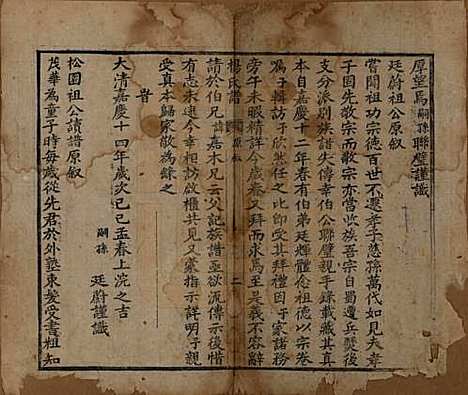 厚望焉嗣孫聯璧謹識
廷蔚祖公原敘
嘗聞祖功宗德百世不遷孝子慈孫萬代如見夫孝
子固先敬宗而敬宗亦當收族吾宗自蜀遭兵燹後
支分派別族譜失傳幸伯公聯璧親手錄載藏其真
本自嘉慶十二年春有伯弟廷輝體念祖德以宗卷
囑予轉訪予欣然任之比即受其真本因予家諸務
旁午未暇精詳今歲又拜而求焉至是予不容辭
請於伯兄嘉木兄云父記族譜並欲流傳示後惜
有志未逮今幸相訪啟櫃共見又蒙指示詳明予親
受真本歸家敬為錄之
楊氏譜 原敘 二
旹
大清嘉慶十四年歲次己巳孟春上浣之吉
嗣孫 廷蔚謹識
松園祖公讀譜原敘
茂華為童子時每歲從先君於外塾束髮受書粗知